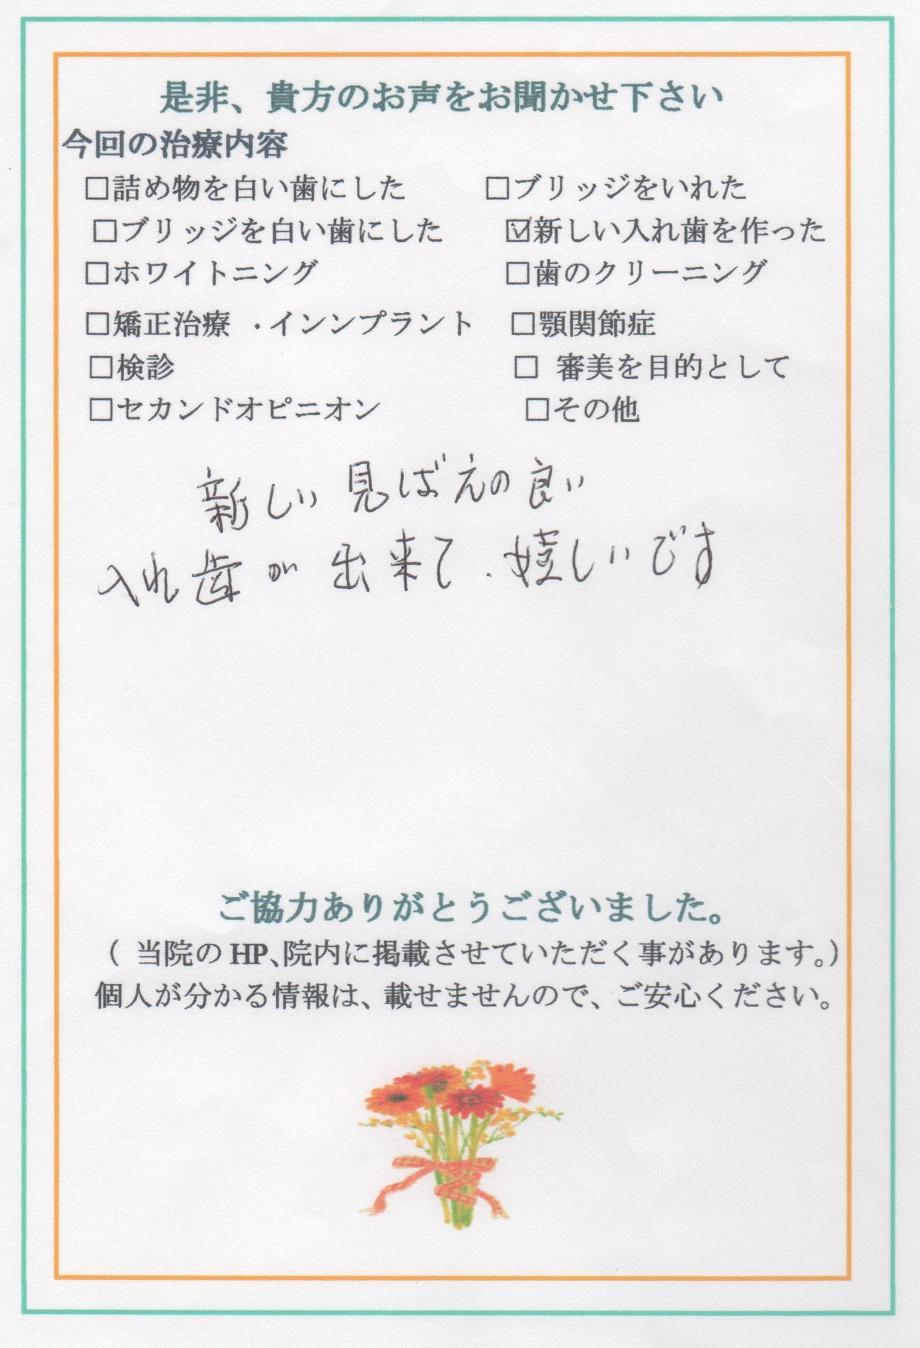 是非、貴方のお声をお聞かせ下さい
今回の治療内容
□詰め物を白い歯にした □ブリッジをいれた
□ブリッジを白い歯にした ☑新しい入れ歯を作った
□ホワイトニング □歯のクリーニング
□矯正治療 ・インンプラント □顎関節症
□検診 □ 審美を目的として
□セカンドオピニオン □その他
新しい見ばえの良い
入れ歯が出来て、嬉しいです
ご協力ありがとうございました。
( 当院のHP、院内に掲載させていただく事があります。)
個人が分かる情報は、載せませんので、ご安心ください。